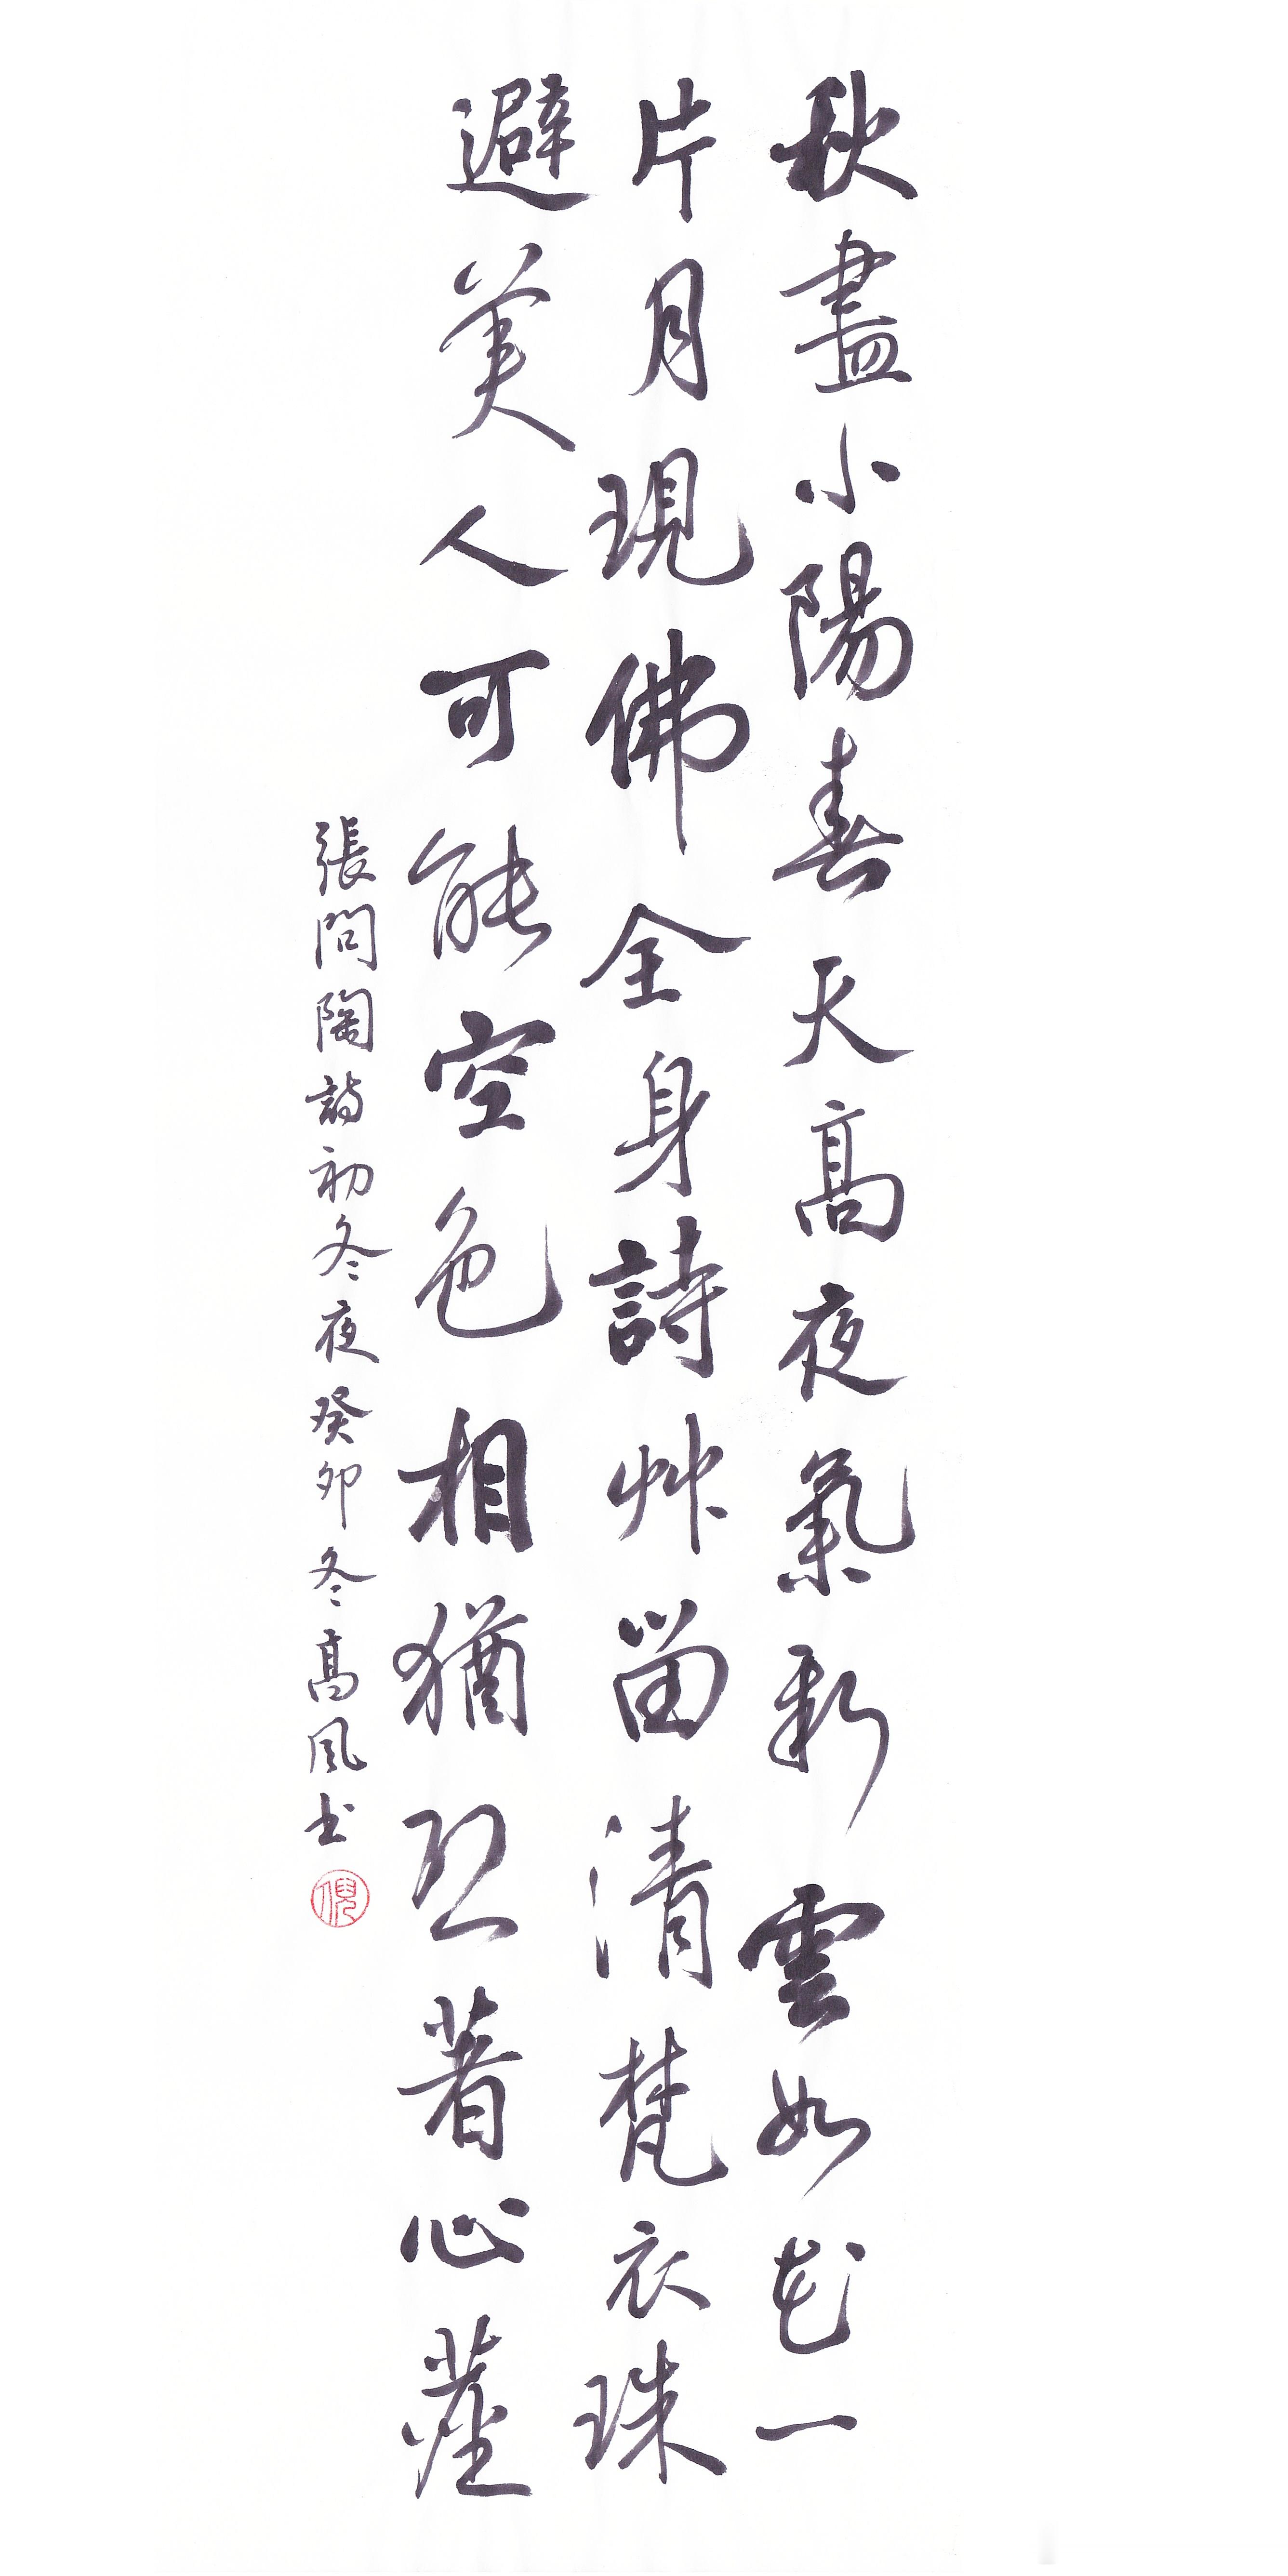 秋盡小陽春天高夜氣新雲如花一
片月現佛全身詩艸留清梵衣珠
避美人可能空色相猶恐著心塵
張問陶詩初冬夜癸卯冬高風书
倪